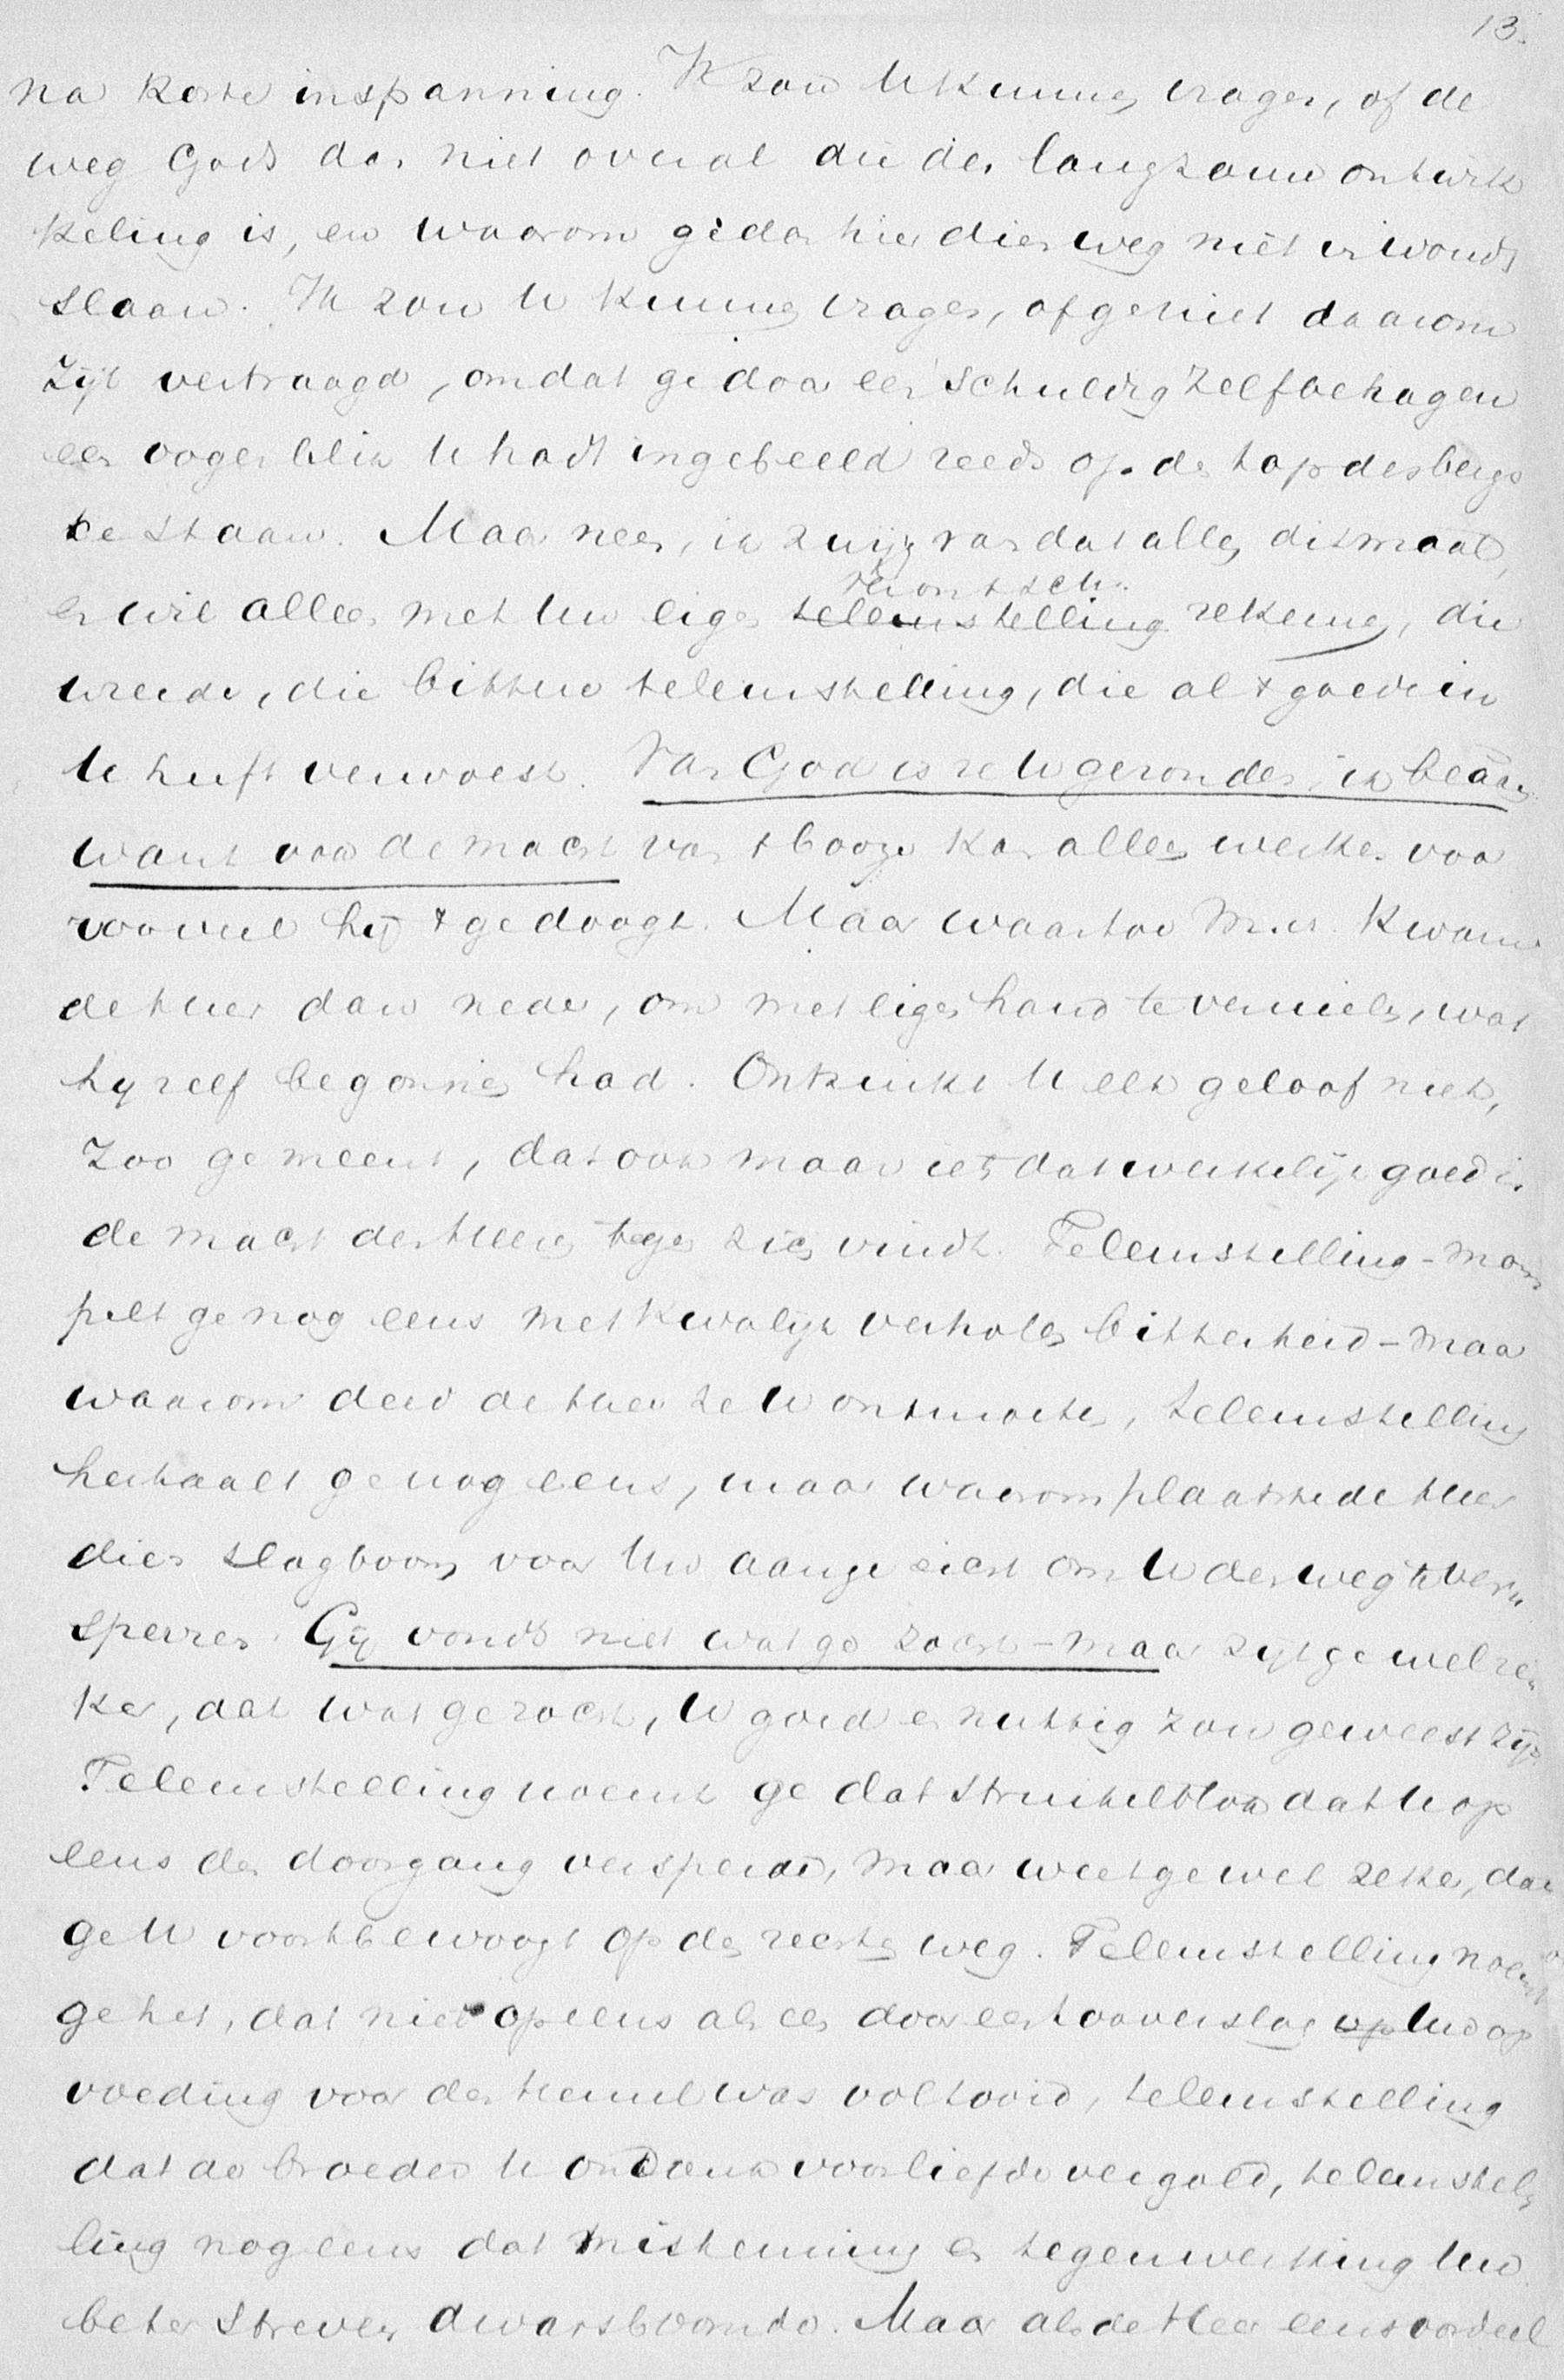 13.
na korte inspanning. Ik zou U kunnen vragen, of de
weg Gods dan niet overal die der langzame ontwik
keling is, en waarom ge dan hier dien weg niet in woudt
slaan. Ik zou U kunnen vragen, of ge niet daarom
zijt vertraagd, omdat ge door een schuldig zelfbehagen
een oogenblik U hadt ingebeeld reeds op den top des bergs
te staan. Maar neen, ik zwijg van dat alles ditmaal,
verontsch.
en wil alleen met Uw eigen teleurstelling rekenen, die
wreede, die bittere teleurstelling, die al 't goede in
U heeft verwoest. Van God is ze U gezonden, ik beaam
want ook de macht van 't booze kan alleen werken voor
zooveel hij 't gedoogt. Maar waartoe M. H. kwam
de Heer dan neder, om met eigen hand te vernielen, wat
hij zelf begonnen had. Ontzinkt U elk geloof niet,
zoo ge meent, dat ook maar iets dat werkelijk goed is
de macht des Heeren tegen zich vindt. Teleurstelling - mom
pelt ge nog eens met kwalijk verholen bitterheid - maar
waarom deed de Heer ze U ontmoeten, teleurstelling
herhaalt ge nog eens, maar waarom plaatste de Heer
dien slagboom voor Uw aangezicht om U den weg te ver
sperren. Gij vondt niet wat ge zocht - maar zijt ge wel ze
ker, dat wat ge zocht, U goed en nuttig zou geweest zijn.
Teleurstelling noemt ge dat struikelblok dat U op
eens den doorgang verspert, maar weet ge wel zeker, dat
ge U voortbewoogt op den rechten weg. Teleurstelling noemt
ge het, dat niet opeens als een door een tooverslag op Uw op
voeding voor den Hemel was voltooid, teleurstelling
dat de broeder U ondank voor liefde vergold, teleurstel
ling nog eens dat miskenning en tegenwerking Uw
beter streven dwarsboomde. Maar als de Heer eens oordeel